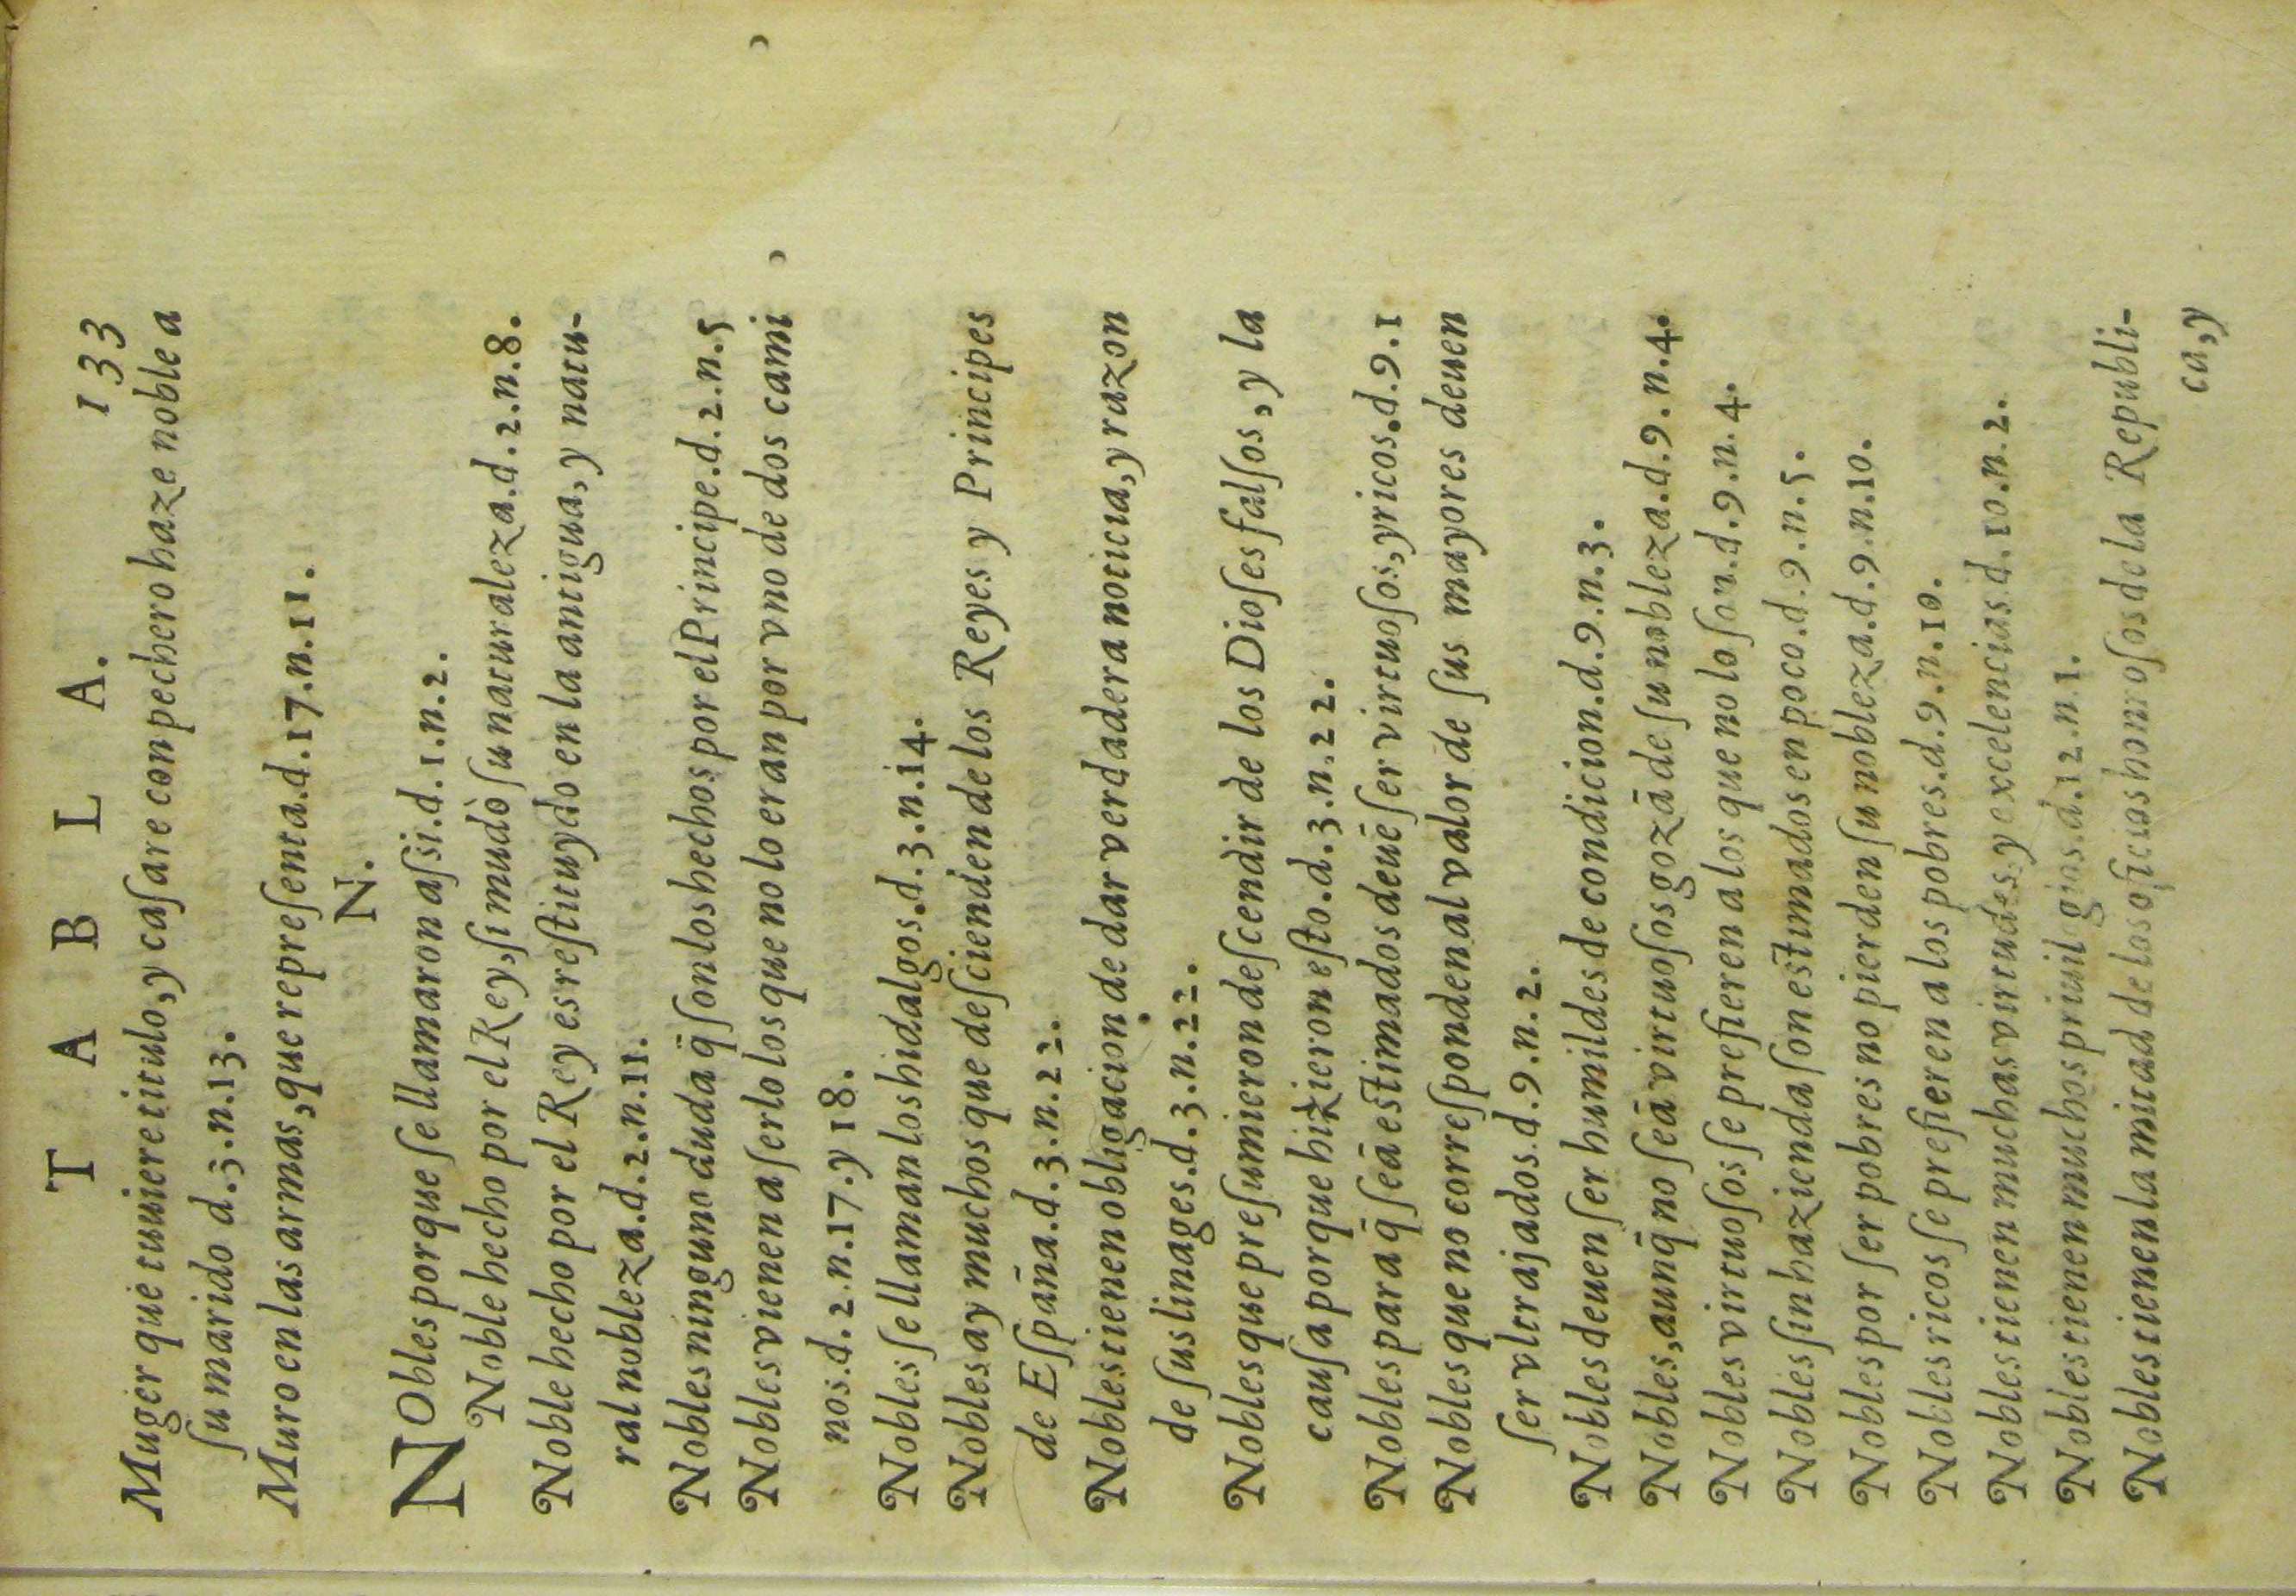 T A B L A. 133
Muger que tuuiere titulo, y caſare con pechero haze noble a
ſu marido d.3.n.13.
Muro en las armas, que repreſenta.d.17.n.11.
N.
NObles porque ſe llamaron aſsi.d.1.n.2.
Noble hecho por el Rey, ſi mudò ſu naturaleza.d.2.n.8.
Noble hecho por el Rey es reſtituydo en la antigua, y natu-
ral nobleza.d.2.n.11.
Nobles ninguno duda q̄ ſon los hechos por el Principe.d.2.n.5
Nobles vienen a ſerlo los que no lo eran por vno de dos cami
nos.d.2.n.17.y 18.
Nobles ſe llaman los hidalgos.d.3.n.14.
Nobles ay muchos que deſcienden de los Reyes y Principes
de Eſpaña.d.3.n.22.
Nobles tienen obligacion de dar verdadera noticia, y razon
de ſus linages.d.3.n.22.
Nobles que preſumieron deſcendir de los Dioſes falſos, y la
cauſa porque hizieron eſto.d.3.n.22.
Nobles para q̄ ſeā estimados deuē ſer virtuoſos, y ricos.d.9.1
Nobles que no correſponden al valor de ſus mayores deuen
ſer vltrajados.d.9.n.2.
Nobles deuen ſer humildes de condicion.d.9.n.3.
Nobles, aunq̄ no ſeā virtuoſos gozā de ſu nobleza.d.9.n.4.
Nobles virtuoſos ſe prefieren a los que no lo ſon.d.9.n.4.
Nobles ſin hazienda ſon estimados en poco.d.9.n.5.
Nobles por ſer pobres no pierden ſu nobleza.d.9.n.10.
Nobles ricos ſe prefieren a los pobres.d.9.n.10.
Nobles tienen muchas virtudes, y excelencias.d.10.n.2.
Nobles tienen muchos priuilegios.d.12.n.1.
Nobles tienen la mitad de los oficios honroſos de la Republi-
ca, y